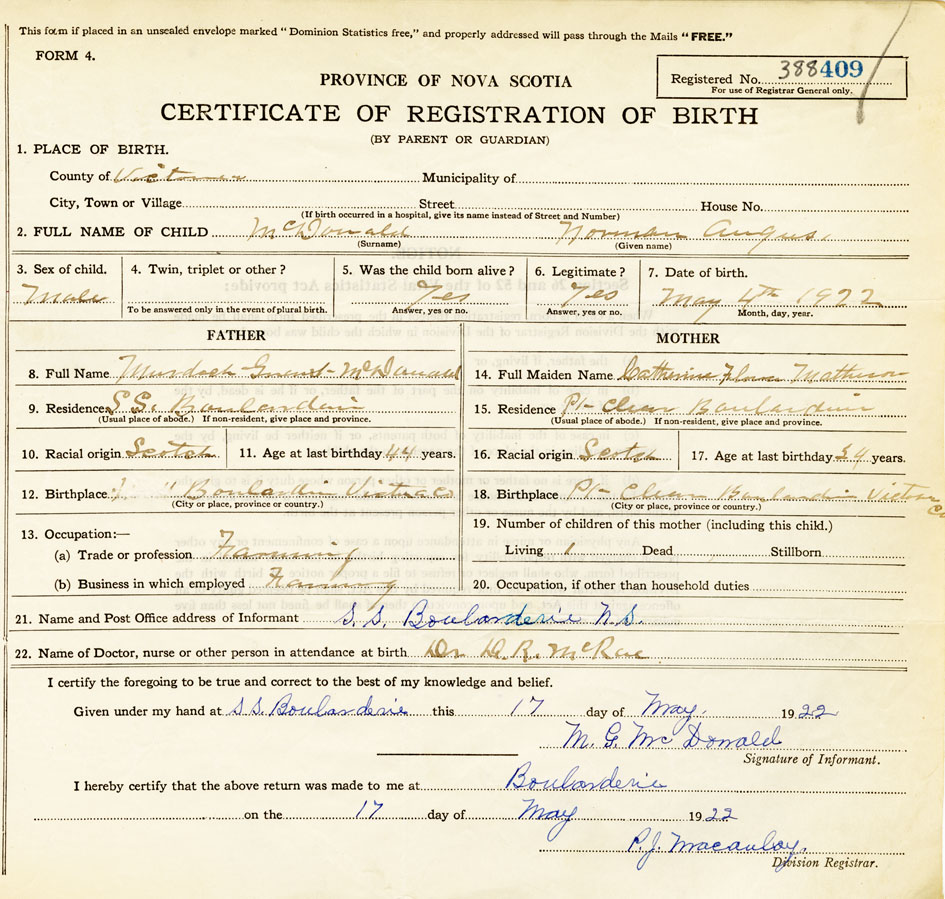 This form if placed in an unsealed envelope marked "Dominion Statistics free," and properly addressed will pass through the Mails "FREE."
FORM 4.
Registered No. 388409
For use of Registrar General only.
PROVINCE OF NOVA SCOTIA
CERTIFICATE OF REGISTRATION OF BIRTH
(BY PARENT OR GUARDIAN)
1. PLACE OF BIRTH.
County of Victoria Municipality of
City, Town or Village Street House No.
(If birth occurred in a hospital, give its name instead of Street and Number)
2. FULL NAME OF CHILD McDonald Norman Angus.
(Surname) (Given name)
3. Sex of child. 4. Twin, triplet or other? 5. Was the child born alive? 6. Legitimate? 7. Date of birth.
Male Yes Yes May 4th 1922
To be answered only in the event of plural birth. Answer, yes or no. Answer, yes or no. Month, day, year.
FATHER MOTHER
8. Full Name Murdoch Grant McDonald 14. Full Maiden Name Catherine Flora Matheson
9. Residence S.S. Boulardrie 15. Residence Boulardrie
(Usual place of abode.) If non-resident, give place and province. (Usual place of abode.) If non-resident, give place and province.
10. Racial origin Scotch 11. Age at last birthday 44 years. 16. Racial origin Scotch 17. Age at last birthday years.
12. Birthplace " Victoria Co 18. Birthplace Victoria Co
(City or place, province or country.) (City or place, province or country.)
13. Occupation:— 19. Number of children of this mother (including this child.)
(a) Trade or profession Farming Living 1 Dead Stillborn
(b) Business in which employed Farming 20. Occupation, if other than household duties
21. Name and Post Office address of Informant S. S. Boularderie N.S.
22. Name of Doctor, nurse or other person in attendance at birth Dr. D. R. McRae
I certify the foregoing to be true and correct to the best of my knowledge and belief.
Given under my hand at S.S. Boularderie this 17 day of May. 1922
M. G. McDonald
Signature of Informant.
I hereby certify that the above return was made to me at Boularderie
on the 17 day of May 1922
P. J. Macaulay.
Division Registrar.